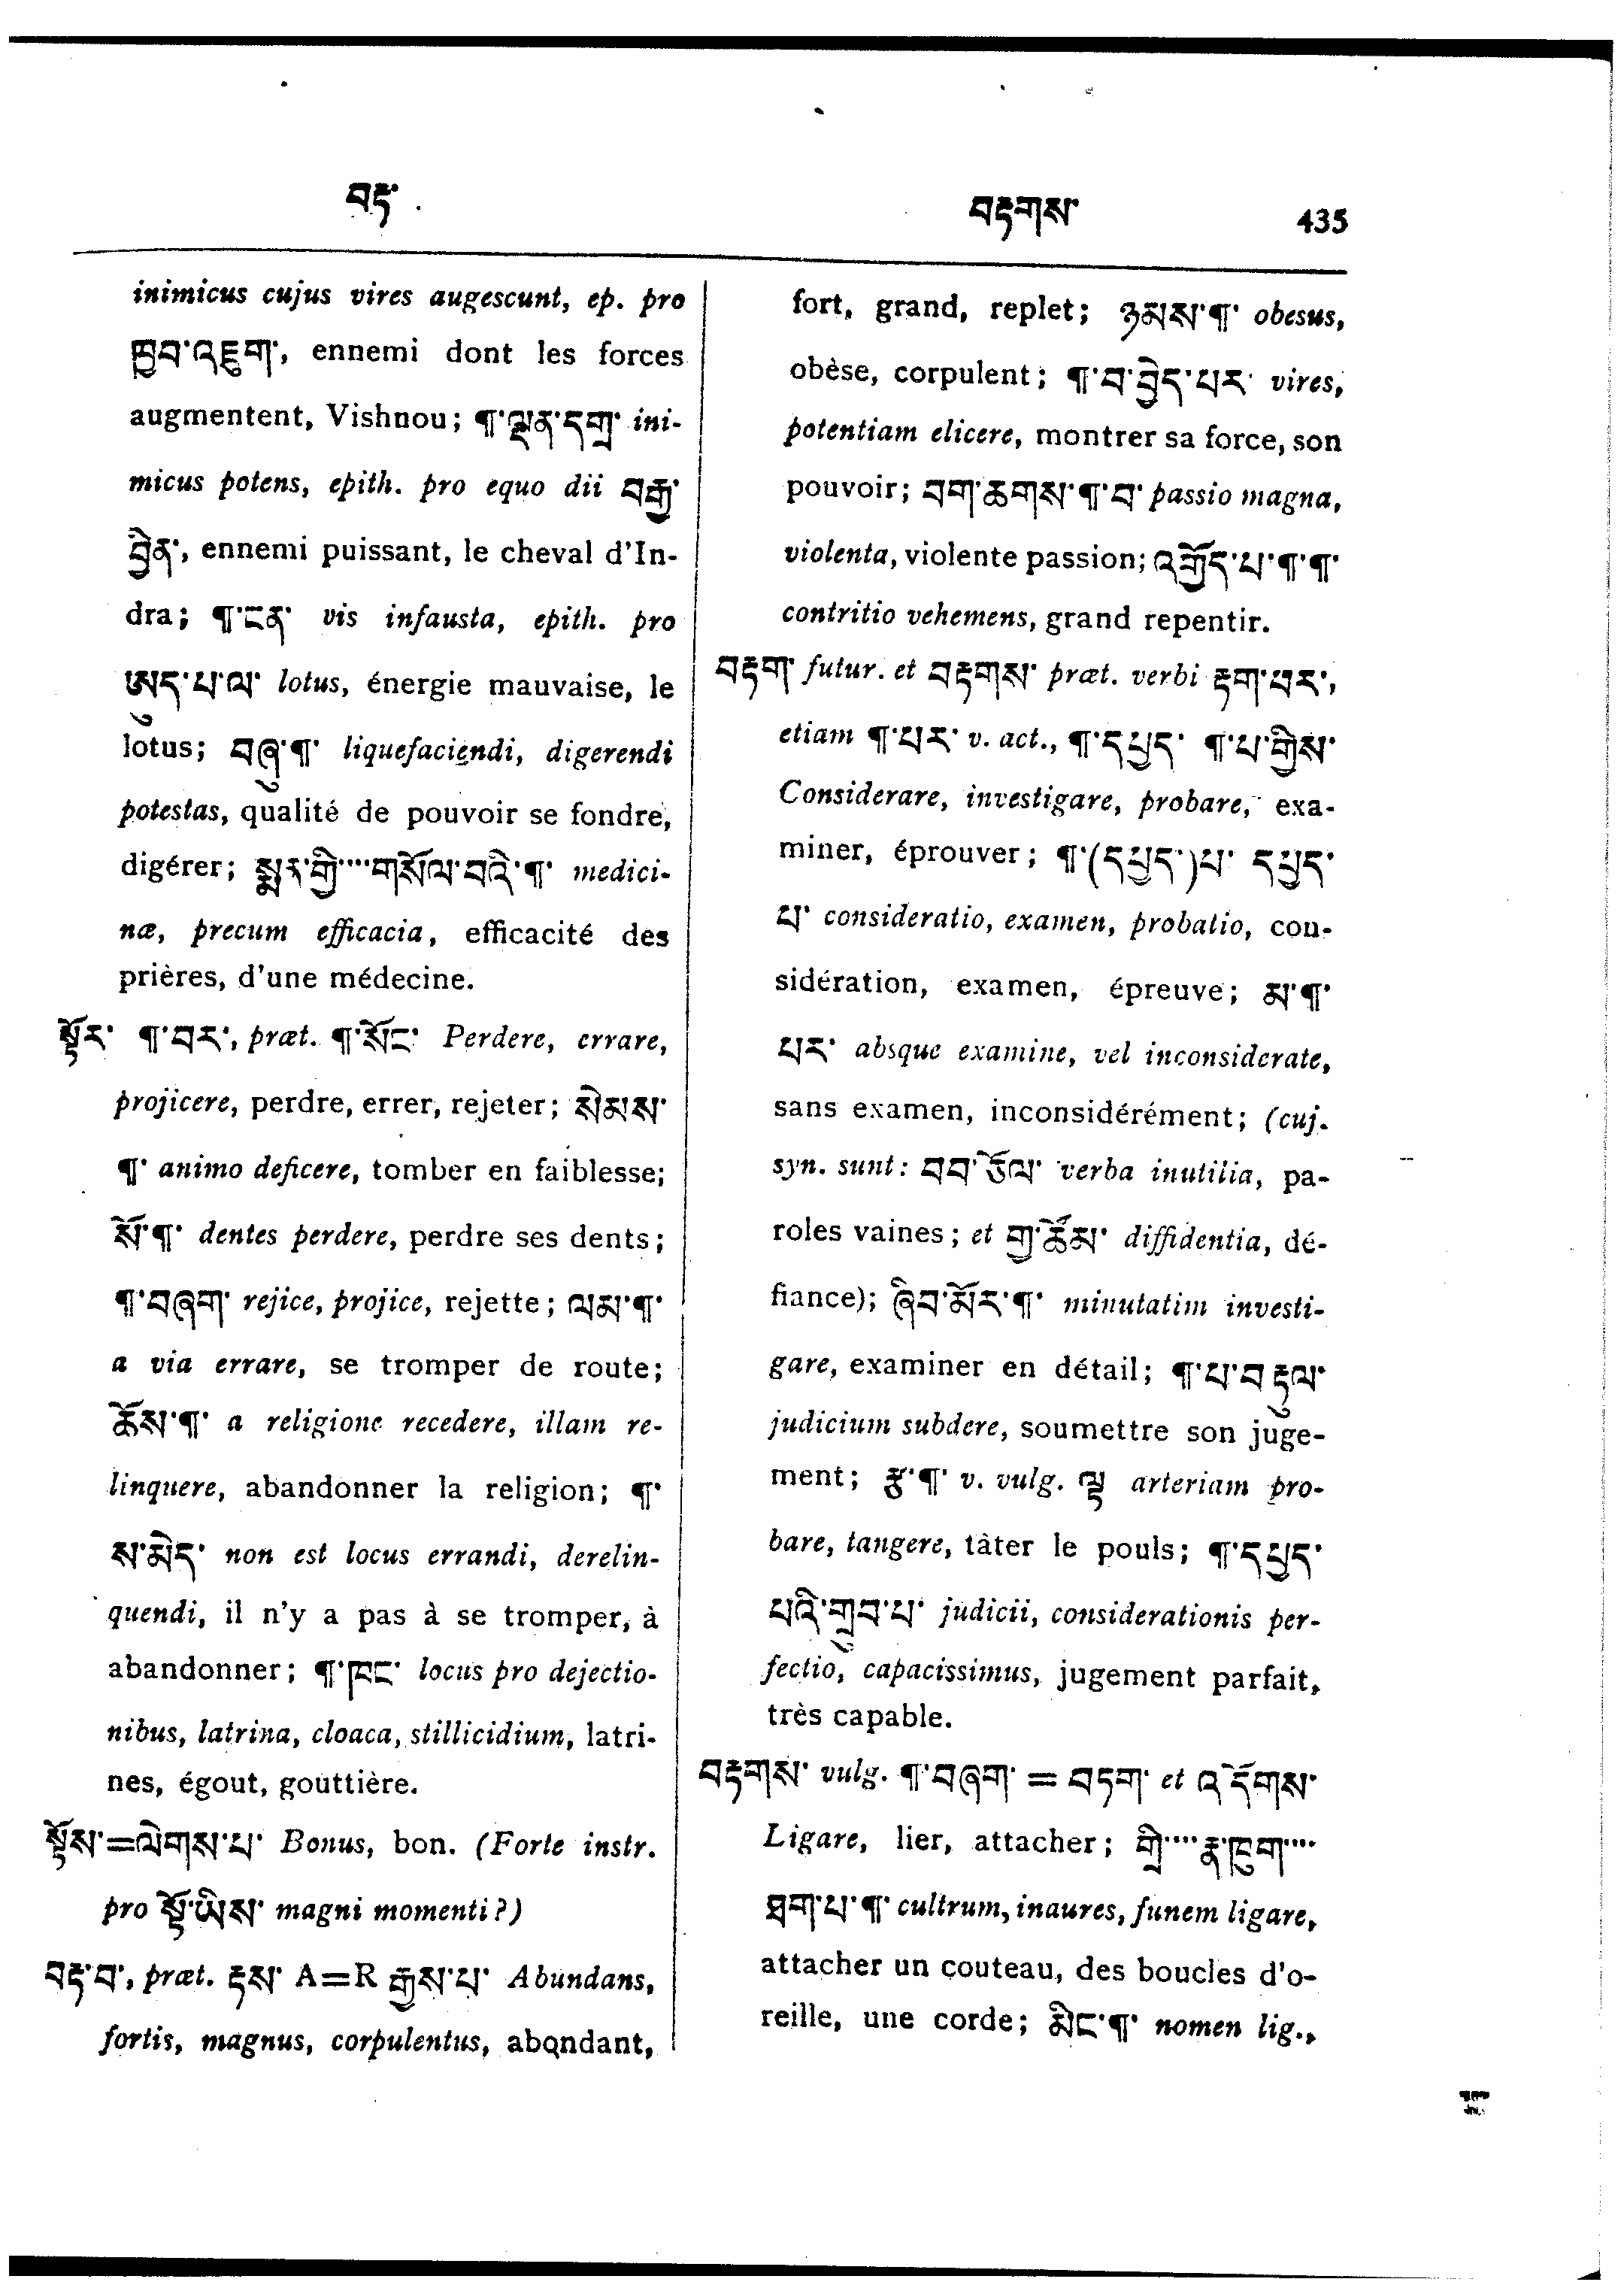 བརྟ་
བརྟགས་ 435
inimicus cujus vires augescunt, ep. pro
ཁྱབ་འཇུག་, ennemi dont les forces
augmentent, Vishnou; ¶་ལྡན་དགྲ་ ini-
micus potens, epith. pro equo dii བརྒྱ་
བྱིན་, ennemi puissant, le cheval d'In-
dra; ¶་ངན་ vis infausta, epith. pro
ཨུད་པ་ལ་ lotus, énergie mauvaise, le
lotus; བཞུ་¶་ liquefaciendi, digerendi
potestas, qualité de pouvoir se fondre,
digérer; སྨན་གྱི་་་་གསོལ་བའི་¶་ medici-
næ, precum efficacia, efficacité des
prières, d'une médecine.
སྟོར་ ¶་བར་, præt. ¶་སོང་ Perdere, errare,
projicere, perdre, errer, rejeter; སེམས་
¶་ animo deficere, tomber en faiblesse;
སོ་¶་ dentes perdere, perdre ses dents;
¶་བཞག་ rejice, projice, rejette; ལམ་¶་
a via errare, se tromper de route;
ཆོས་¶་ a religione recedere, illam re-
linquere, abandonner la religion; ¶་
ས་མེད་ non est locus errandi, derelin-
quendi, il n'y a pas à se tromper, à
abandonner; ¶་ཁང་ locus pro dejectio-
nibus, latrina, cloaca, stillicidium, latri-
nes, égout, gouttière.
སྟོས་=ལེགས་པ་ Bonus, bon. (Forte instr.
pro སྟོ་ཡིས་ magni momenti?)
བརྟ་བ་, præt. རྟས་ A=R རྒྱས་པ་ Abundans,
fortis, magnus, corpulentus, abondant,
fort, grand, replet; ཉམས་¶་ obesus,
obèse, corpulent; ¶་བ་བྱེད་པར་ vires,
potentiam elicere, montrer sa force, son
pouvoir; བག་ཆགས་¶་བ་ passio magna,
violenta, violente passion; འགྱོད་པ་¶་¶་
contritio vehemens, grand repentir.
བརྟག་ futur. et བརྟགས་ præt. verbi རྟག་པར་,
etiam ¶་པར་ v. act., ¶་དཔྱད་ ¶་པ་གྱིས་
Considerare, investigare, probare, exa-
miner, éprouver; ¶་(དཔྱད་)པ་ དཔྱད་
པ་ consideratio, examen, probatio, con-
sidération, examen, épreuve; མ་¶་
པར་ absque examine, vel inconsiderate,
sans examen, inconsidérément; (cuj.
syn. sunt: བབ་ཅོལ་ verba inutilia, pa-
roles vaines; et གྱ་ཚོམ་ diffidentia, dé-
fiance); ཞིབ་མོར་¶་ minutatim investi-
gare, examiner en détail; ¶་པ་བརྟུལ་
judicium subdere, soumettre son juge-
ment; རྩ་¶་ v. vulg. ལྟ་ arteriam pro-
bare, tangere, tàter le pouls; ¶་དཔྱད་
པའི་གྲུབ་པ་ judicii, considerationis per-
fectio, capacissimus, jugement parfait,
très capable.
བརྟགས་ vulg. ¶་བཞག་ = བཏག་ et འདོགས་
Ligare, lier, attacher; གྲི་་་་རྣ་ཁུག་་་་
ཐག་པ་¶་ cultrum, inaures, funem ligare,
attacher un couteau, des boucles d'o-
reille, une corde; མིང་¶་ nomen lig.,